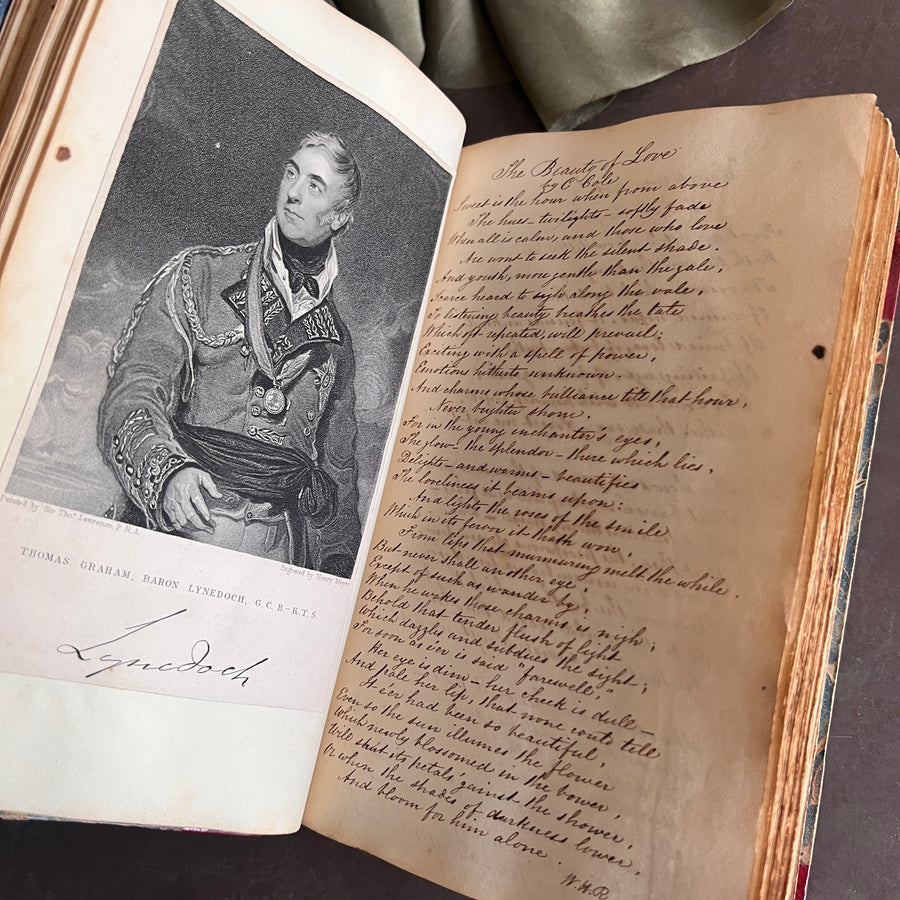 Painted by Sir Thos. Lawrence, P.R.A.
Engraved by Henry Meyer
THOMAS GRAHAM, BARON LYNEDOCH, G.C.B.–K.T.S.
Lynedoch
The Beauty of Love
by C Cole
Sweet is the hour when from above
The hues twilights – softly fade
When all is calm, and those who love
Are wont to seek the silent shade.
And youth, more gentle than the gale,
Scarce heard to sigh along the vale,
To listening beauty breathes the tale
Which oft repeated, will prevail;
Exciting with a spell of power,
Emotions hitherto unknown.
And charms whose brilliance till that hour,
Never brighter shone.
For in the young enchanter's eyes,
The glow – the splendor – there which lies,
Delights – and warms – beautifies
The loneliness it beams upon:
And lights the roses of the smile
Which in its fervor it hath won,
From lips that murmuring melt the while.
But never shall another eye,
Except of such as, wander by,
When he wakes those charms is nigh;
Behold that tender flush of light
Which dazzles and subdues the sight;
For soon as e'er is said "farewell,"
Her eye is dim – her cheek is dull –
And pale her lip, that none could tell
It e'er had been so beautiful,
Even so the sun illumes the flower
Which newly blossomed in the bower,
Will shut its petals 'gainst the shower,
Or when the shades of darkness lower,
And bloom for him alone.
W.H.R